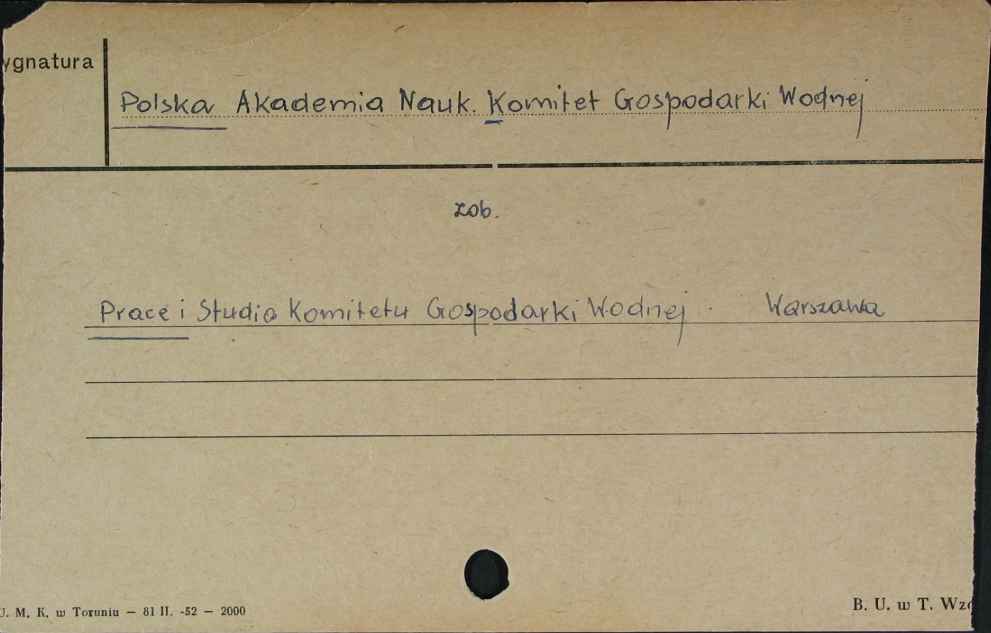 ygnatura
Polska Akademia Nauk. Komitet Gospodarki Wodnej
zob.
Prace i Studia Komitetu Gospodarki Wodnej. Warszawa
U. M. K. w Toruniu — 81 II. -52 — 2000
B. U. w T. Wzó